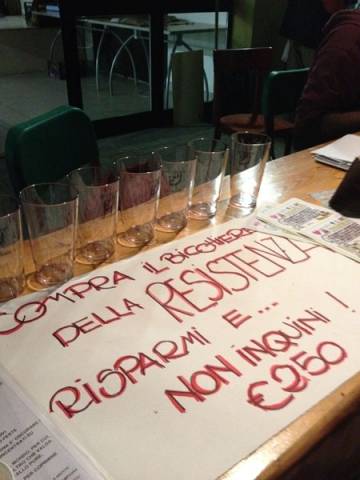 COMPRA IL BICCHIERE
DELLA RESISTENZA
RISPARMI E...
NON INQUINI!
€250